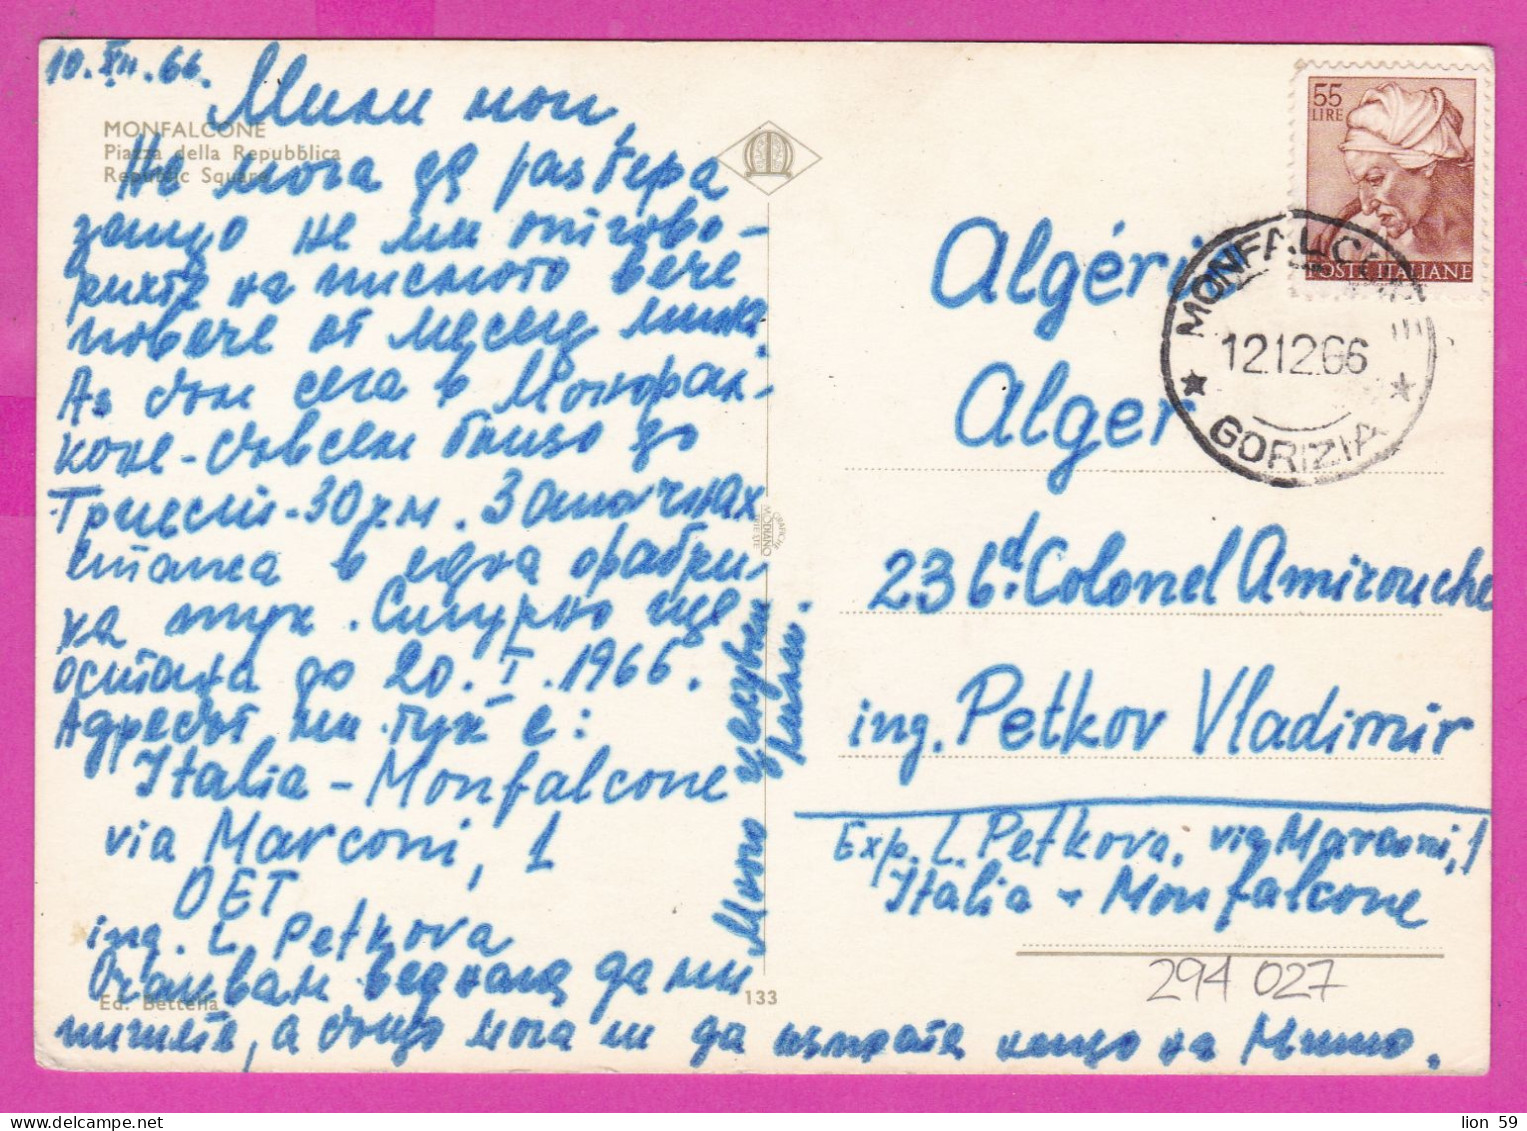 10.XII.66.
Мили мои,
MONFALCONE
Piazza della Repubblica
Republic Square
Не мога да разбера
защо не ми отгово-
рихте на писмото вече
повече от месец мина.
Аз съм сега в Монфал-
коне - съвсем близо до
Триест - 30 км. Започнах
стажа в една фабри-
ка тук. Сигурно ще
остана до 20.I.1966.
Адресът ми тук е:
Italia - Monfalcone
via Marconi, 1
OET
ing. L. Petkova
Очаквам веднага да ми
пишете, а също мога ли да изпратя нещо на Мишо.
Много целувки
Ed. Bettella
133
GRAFICHE
MODIANO
TRIESTE
55
LIRE
POSTE ITALIANE
MONFALCONE
12.12.66
GORIZIA
Algérie
Alger
23 bd. Colonel Amirouche
ing. Petkov Vladimir
Exp. L. Petkova, via Marconi, 1
Italia - Monfalcone
294 027
lion 59